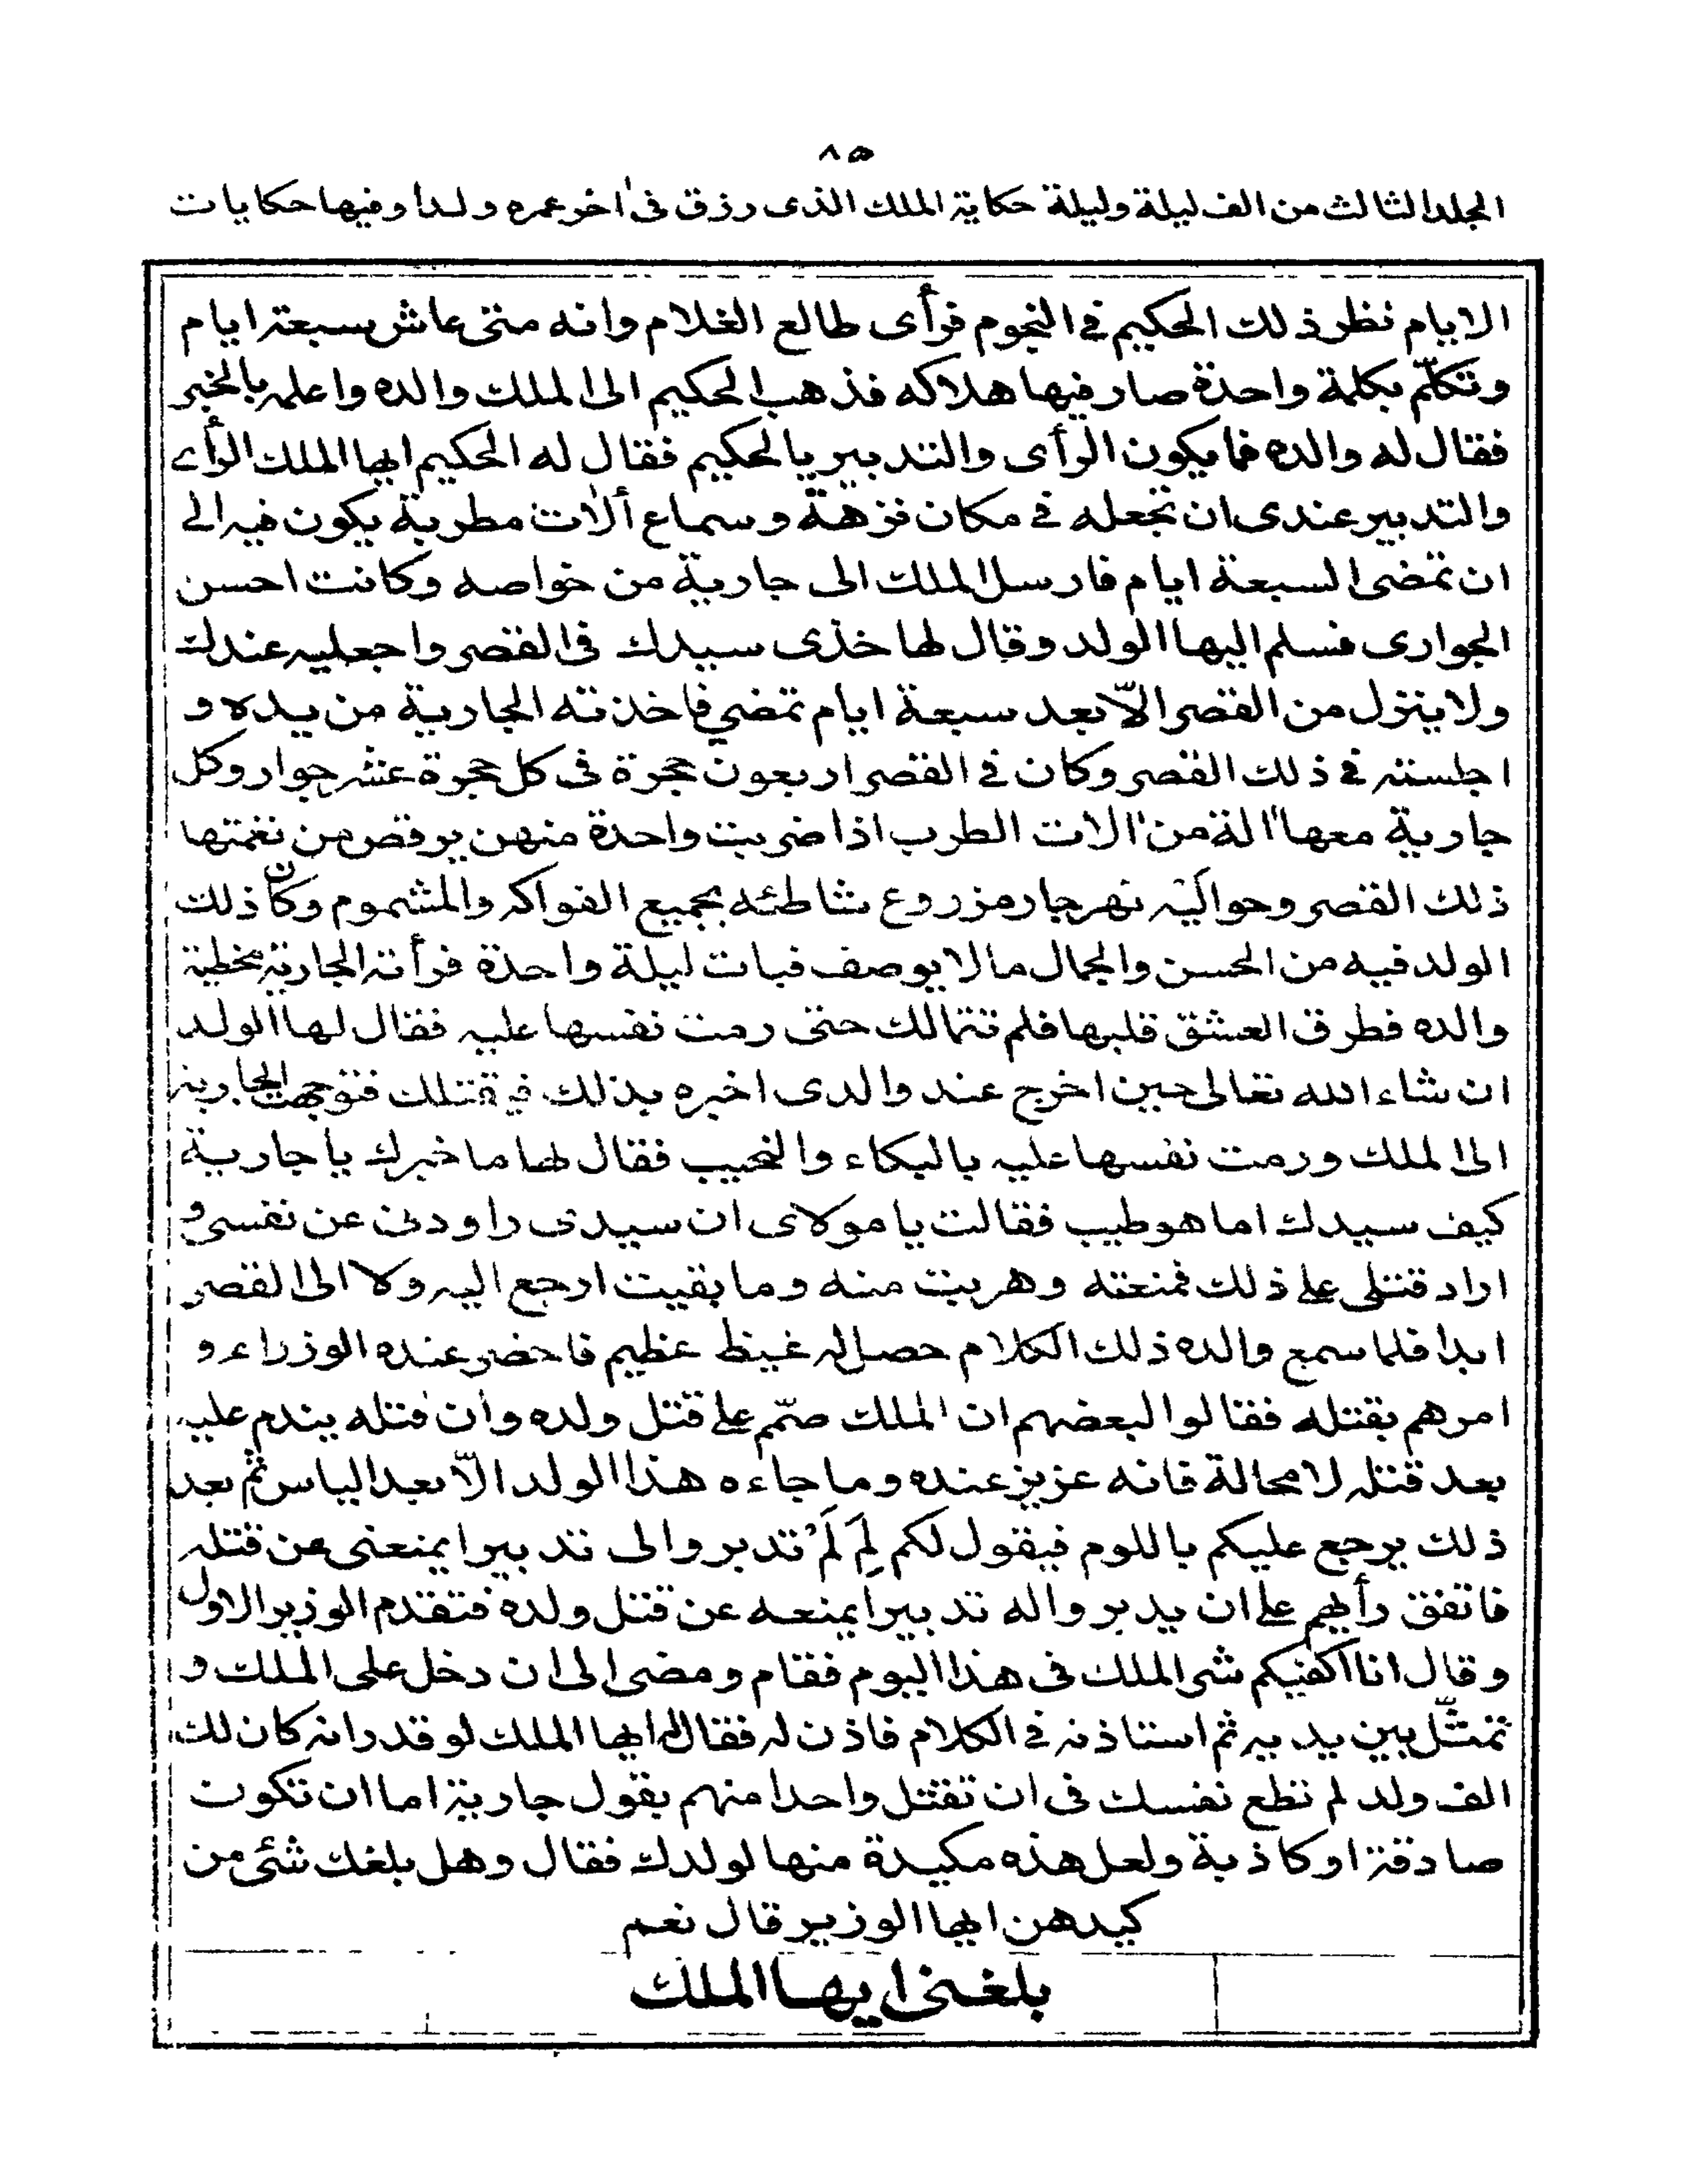 ٨٥
المجلد الثالث من الف ليلة وليلة حكاية الملك الذى رزق فى اخر عمره ولدا وفيها حكايات
الايام نظر ذلك الحكيم فى النجوم فرأى طالع الغلام وانه متى عاش سبعة ايام
وتكلّم بكلمة واحدة صار فيها هلاكه فذهب الحكيم الى الملك والده واعلمه بالخبر
فقال له والده فما يكون الرأى والتدبير يا حكيم فقال له الحكيم ايها الملك الرأى
والتدبير عندى ان تجعله فى مكان نزهة وسماع ألات مطربة يكون فيه الى
ان تمضى السبعة ايام فارسل الملك الى جارية من خواصه وكانت احسن
الجوارى فسلم اليها الولد وقال لها خذى سيدك فى القصر واجعليه عندك
ولا ينزل من القصر الاّ بعد سبعة ايام تمضي فاخذته الجارية من يده و
اجلسته فى ذلك القصر وكان فى القصر اربعون حجرة فى كل حجرة عشر جوار وكل
جارية معها الة من الات الطرب اذا ضربت واحدة منهن يرقص من نغمتها
ذلك القصر وحواليه نهر جار مزروع شاطئه بجميع الفواكه والمشموم وكان ذلك
الولد فيه من الحسن والجمال ما لا يوصف فبات ليلة واحدة فرأته الجارية محظية
والده فطرق العشق قلبها فلم تتمالك حتى رمت نفسها عليه فقال لها الولد
ان شاء الله تعالى حين اخرج عند والدى اخبره بذلك فيقتلك فتوجهت الجارية
الى الملك ورمت نفسها عليه بالبكاء والنحيب فقال لها ما خبرك يا جارية
كيف سيدك اما هو طيب فقالت يا مولاى ان سيدى راودنى عن نفسى و
اراد قتلى على ذلك فمنعته وهربت منه وما بقيت ارجع اليه ولا الى القصر
ابدا فلما سمع والده ذلك الكلام حصل له غيظ عظيم فاحضر عنده الوزراء و
امرهم بقتله فقالوا لبعضهم ان الملك صمّم على قتل ولده وان قتله يندم عليه
بعد قتله لا محالة فانه عزيز عنده وما جاءه هذا الولد الاّ بعد الياس ثم بعد
ذلك يرجع عليكم باللوم فيقول لكم لِمَ لَمْ تدبروا لى تدبيرا يمنعنى عن قتله
فاتفق رأيهم على ان يدبروا له تدبيرا يمنعه عن قتل ولده فتقدم الوزير الاول
وقال انا اكفيكم شر الملك فى هذا اليوم فقام ومضى الى ان دخل على الملك و
تمثّل بين يديه ثم استاذنه فى الكلام فاذن له فقال له ايها الملك لو قدر انه كان لك
الف ولد لم تطع نفسك فى ان تقتل واحدا منهم بقول جارية اما ان تكون
صادقة او كاذبة ولعل هذه مكيدة منها لولدك فقال وهل بلغك شئ من
كيدهن ايها الوزير قال نعم
بلغنى ايها الملك